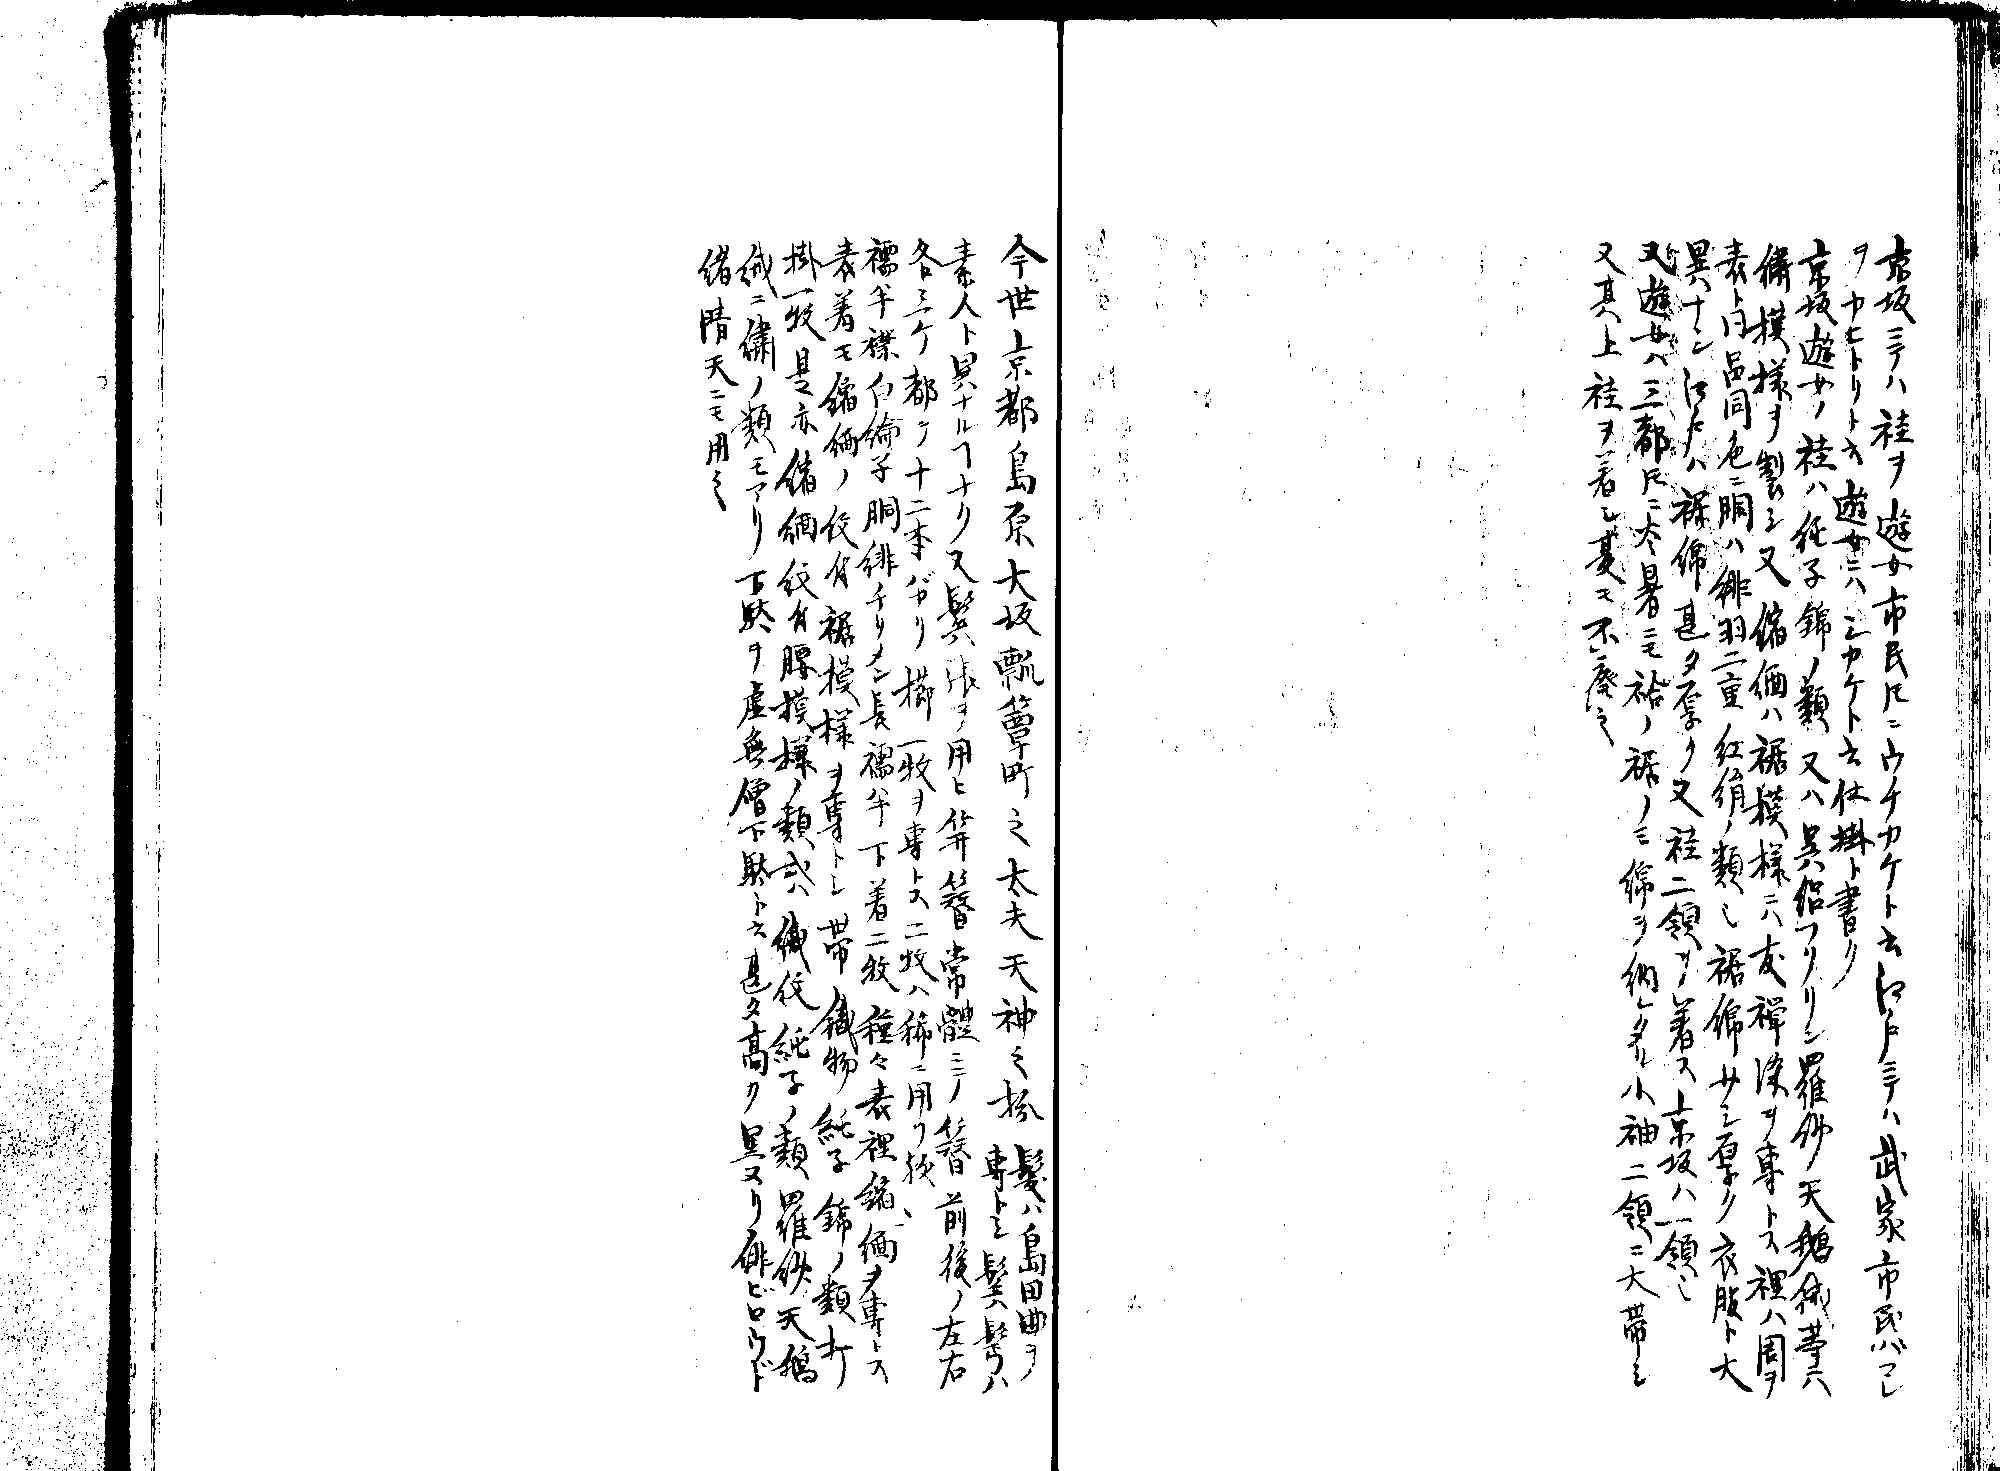 京坂ニテハ袿ヲ遊女市民トモニウチカケト云江戸ニテハ武家市民バコレ
ヲカヒトリト云遊女ニハシカケト云仕掛ト書ク
京坂遊女ノ袿ハ純子錦ノ類又ハ呉絽フクリン羅紗天鵝絨等ハ
繍模様ヲ製シ又縮緬ハ裾模様ニハ友禅染ヲ専トス裡ハ周ヲ
表ト同品同色ニ胴ハ緋羽二重ノ紅絹ノ類也裾綿サシ厚ク衣服ト大
異ナシ江戸ハ裾綿甚タ厚ク又袿二領ヲ着ス京坂ハ一領也
又遊女ハ三都トモニ大暑ニモ袷ノ裾ノミ綿ヲ納レタル小袖二領ニ大帯シ
又其上袿ヲ着シ夏モ不廃之
今世京都島原大坂瓢箪町之太夫天神之扮
髪ハ島田曲ヲ
専トシ鬢髱ハ
素人ト異ナルコトナク又鬢張ヲ用ヒ笄簪常體ニシノ簪前後ノ左右
各三ケ都テ十二本バカリ櫛一枚ヲ専トス二枚ハ稀ニ用フ歟
襦半襟白綸子胴緋チリメン長襦半下着二枚種々表裡縮緬ヲ専トス
表着モ縮緬ノ紋付裾模様ヲ専トシ帯織物純子錦ノ類打
掛一枚是亦縮緬紋付腰模様ノ類或ハ織紋純子ノ類羅紗天鵝
絨ニ繍ノ類モアリ下駄ヲ虚無僧下駄ト云甚タ高ク黒ヌリ緋ビロウド
緒晴天ニモ用之